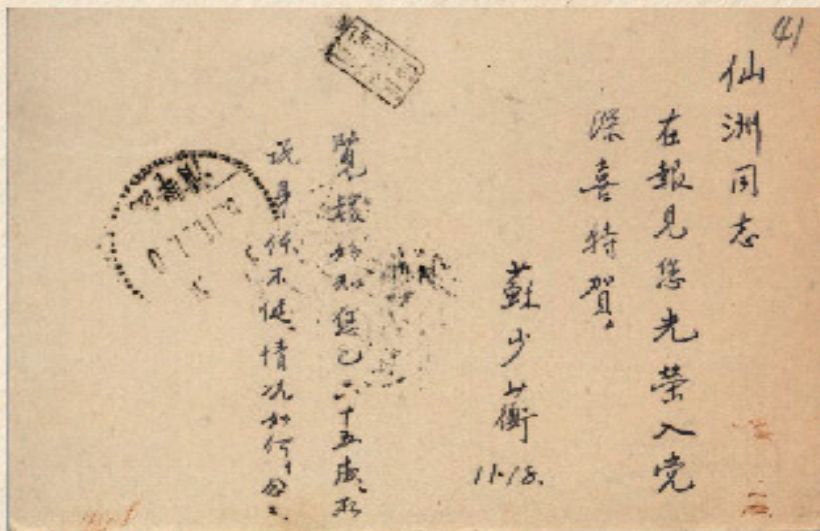 41
仙洲同志
在報見您光荣入党
深喜特賀。
蘇少衡
11.18.
覽報始知您已六十五歲
说身体不健、情况如何、